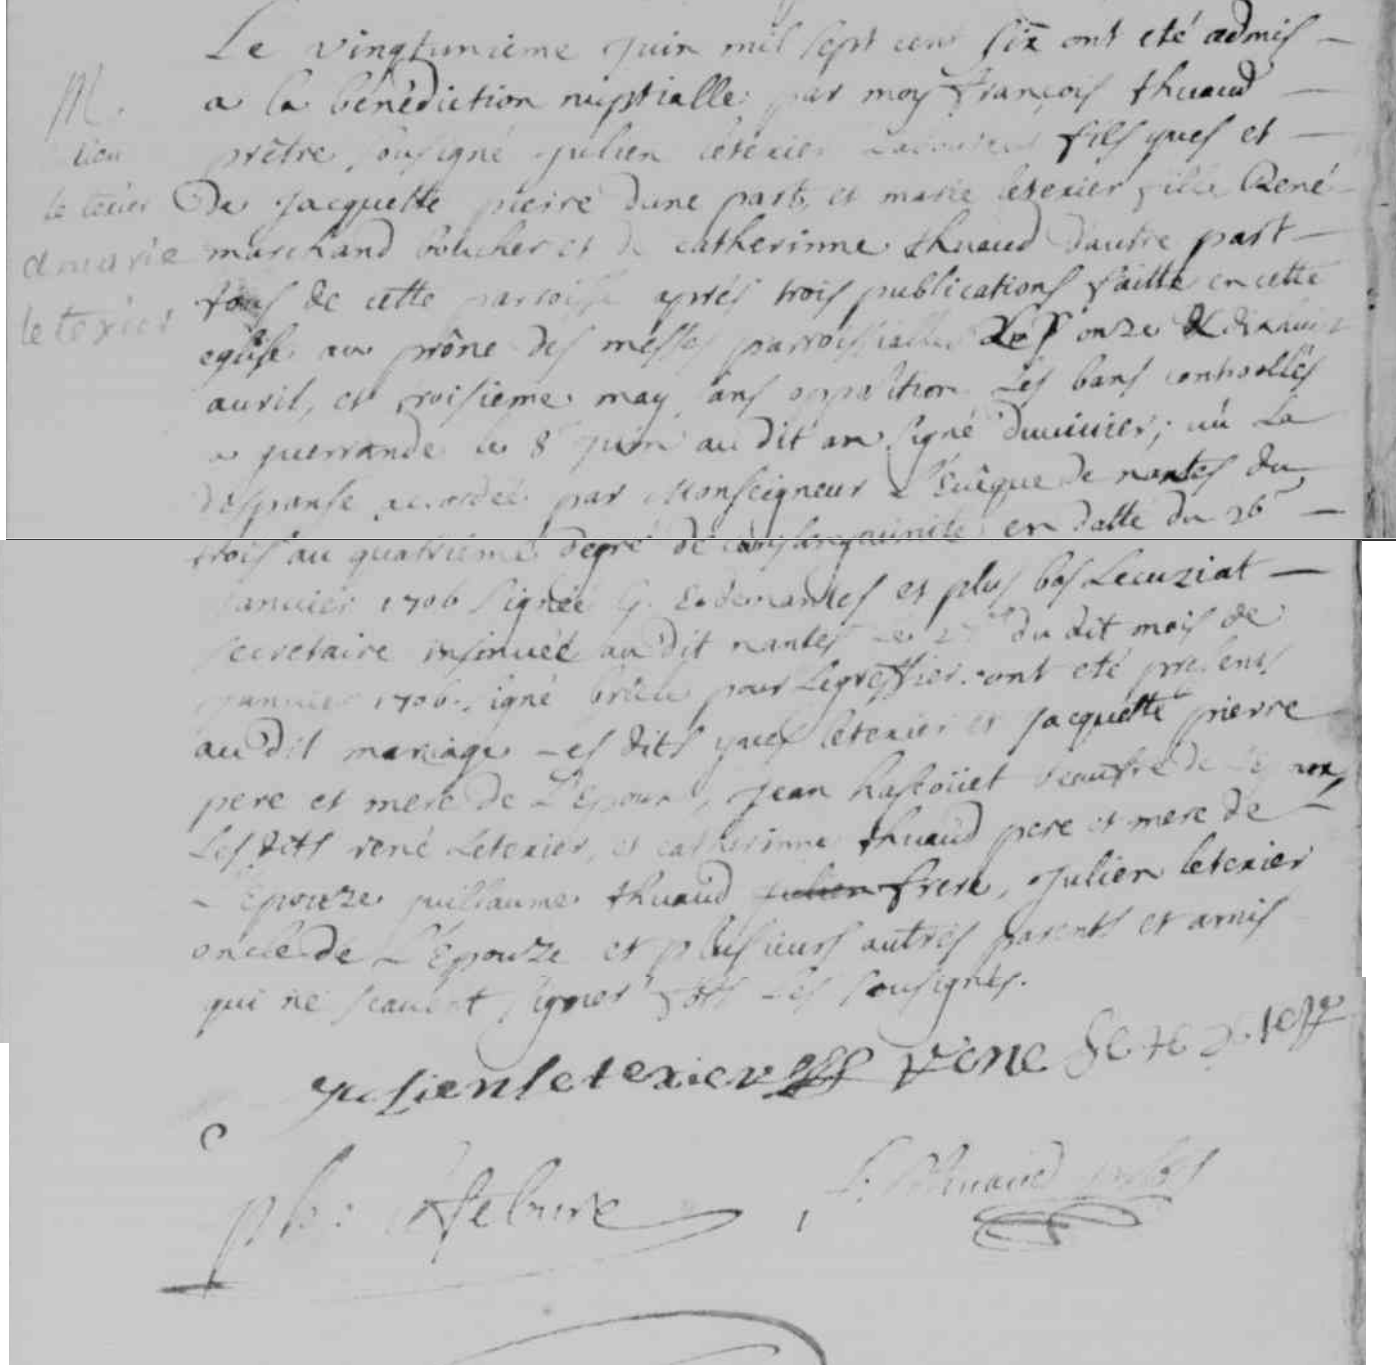 Le vingtunieme juin mil sept cent six ont eté admis
a la bénédiction nuptialle par moy françois thuaud
prêtre sousigné julien letexier fils yues et
M.
lien
le texier
a marie
le texier
De jacquette pierre dune part, et marie letexier fille René
marchand boucher et de catherinne thuaud dautre part
tous de cette parroisse aprés trois publications faitte en cette
eglise au prône des messes parroissialles les onze & dixhuit
auril, et troisieme may sans opposition Les bans controollés
a guerrande le 8e juin au dit an signé duuiuier; uû La
dispanse accordée par Monseigneur L'Euêque de nantes du
trois au quatrieme degré de consanguinité en datte du 26e
januier 1706 signée G. E. de nantes et plus bas Lecuziat
secretaire insinuée au dit nantes le 27e du dit mois de
januier 1706 signé pour Le greffier. ont eté presens
au dit mariage Les dits yues letexier et jacquette pierre
pere et mere de L'Epoux, jean beaufre de
Les dits rené Letexier, et catherinne thuaud pere et mere de
L'Epouze guillaume thuaud julien frere, julien letexier
oncle de L'Epouze et plusieurs autres parents et amis
qui ne scauent signer fors Les sousignés.
julien letexier rene letexier
ph: lefebure F. Thuaud